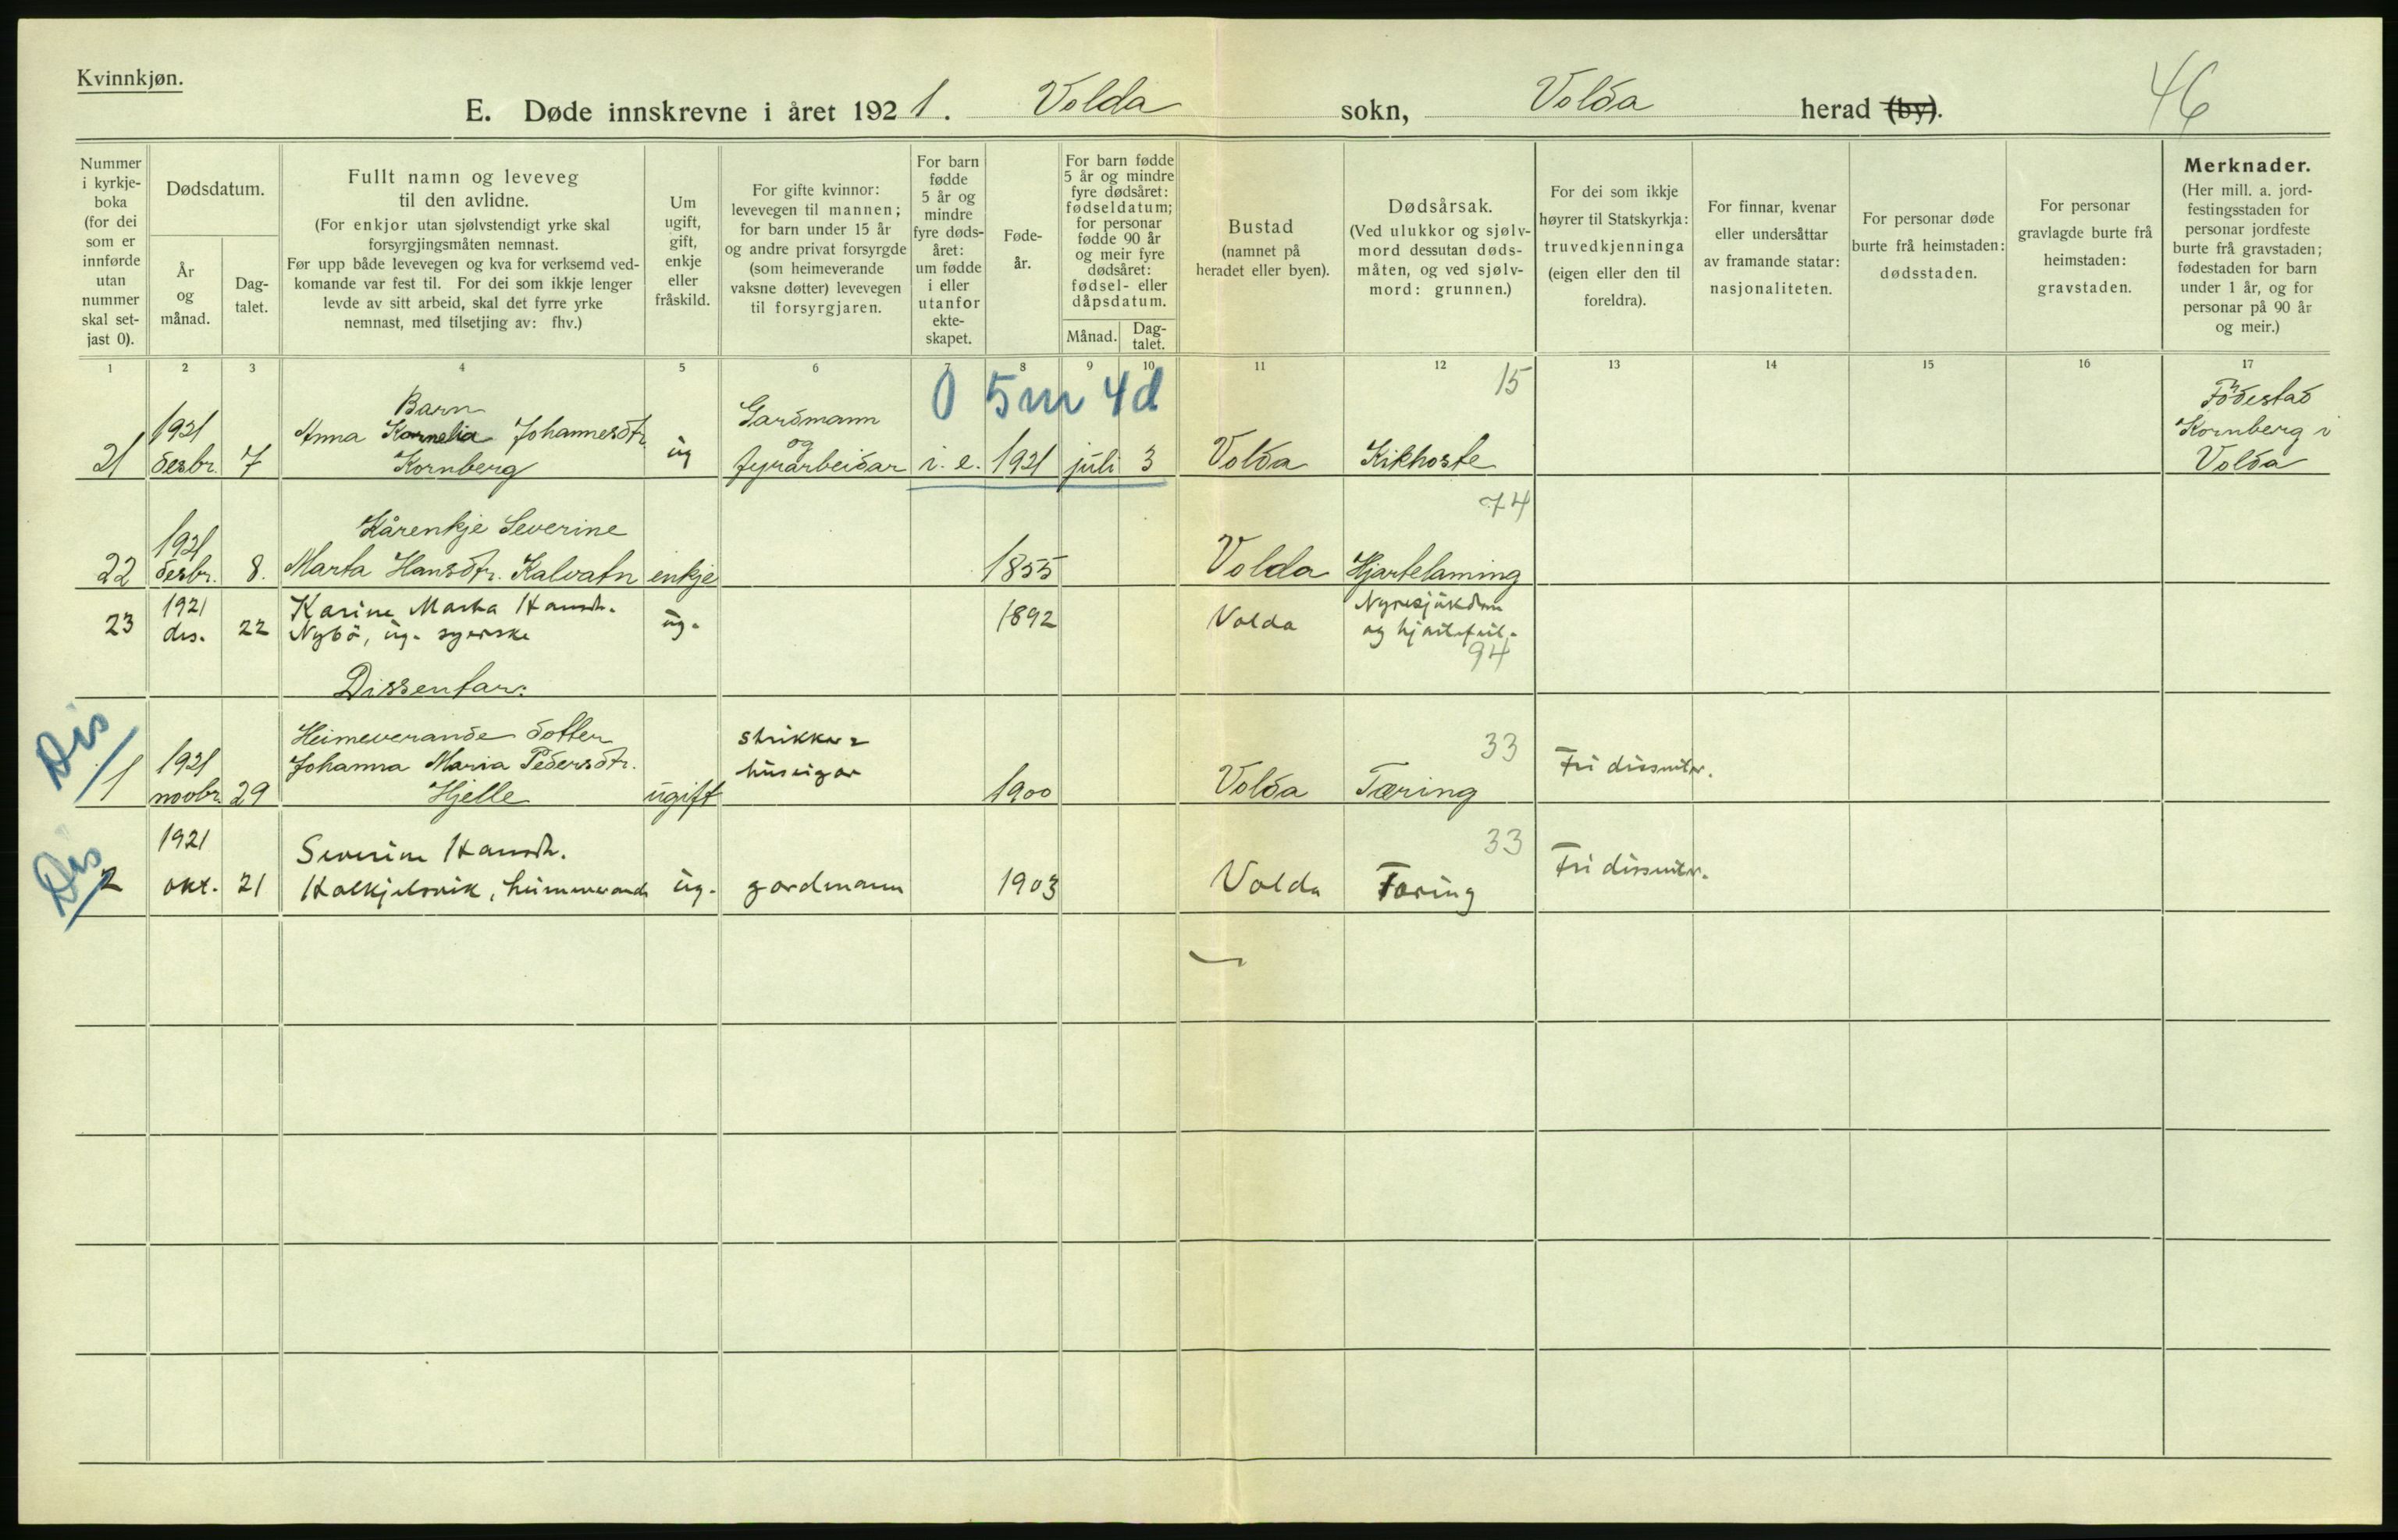 Kvinnkjøn.
E. Døde innskrevne i året 1921. Volda sokn, Volda herad (by).
46
Nummer
i kyrkje-
boka
(for dei
som er
innførde
utan
nummer
skal set-
jast 0).
Dødsdatum.
År
og
månad.
Dag-
talet.
Fullt namn og leveveg
til den avlidne.
(For enkjor utan sjølvstendigt yrke skal
forsyrgjingsmåten nemnast.
Før upp både levevegen og kva for verksemd ved-
komande var fest til. For dei som ikkje lenger
levde av sitt arbeid, skal det fyrre yrke
nemnast, med tilsetjing av: fhv.)
Um
ugift,
gift,
enkje
eller
fråskild.
For gifte kvinnor:
levevegen til mannen;
for barn under 15 år
og andre privat forsyrgde
(som heimeverande
vaksne døtter) levevegen
til forsyrgjaren.
For barn
fødde
5 år og
mindre
fyre døds-
året:
um fødde
i eller
utanfor
ekte-
skapet.
Føde-
år.
For barn fødde
5 år og mindre
fyre dødsåret:
fødseldatum;
for personar
fødde 90 år
og meir fyre
dødsåret:
fødsel- eller
dåpsdatum.
Månad.
Dag-
talet.
Bustad
(namnet på
heradet eller byen).
Dødsårsak.
(Ved ulukkor og sjølv-
mord dessutan døds-
måten, og ved sjølv-
mord: grunnen.)
For dei som ikkje
høyrer til Statskyrkja:
truvedkjenninga
(eigen eller den til
foreldra).
For finnar, kvenar
eller undersåttar
av framande statar:
nasjonaliteten.
For personar døde
burte frå heimstaden:
dødsstaden.
For personar
gravlagde burte frå
heimstaden:
gravstaden.
Merknader.
(Her mill. a. jord-
festingsstaden for
personar jordfeste
burte frå gravstaden;
fødestaden for barn
under 1 år, og for
personar på 90 år
og meir.)
1 2 3 4 5 6 7 8 9 10 11 12 13 14 15 16 17
0 5m 4d
15
Barn
Gardmann
Fødestad
1921
Anna Kornelia Johannesdtr.
og
Kornberg i
21 desbr. 7 Kornberg ug fyrarbeidar i. e. 1921 juli 3 Volda Kikhoste Volda
74
Kårenkje Severine
1921
22 desbr. 8. Marta Hansdtr. Kalvatn enkje 1855 Volda Hjartelaming
1921 Karine Marta Hansdtr. Nyresjukdom
23 des. 22 Nybø, ug. syerske ug. 1892 Volda og hjartefeil.
94
Dissentar:
Dis
Heimeverande dotter
strikkar
33
1921 Johanna Maria Pedersdtr.
huseigar
Fri dissenter.
1 novbr. 29 Hjelle ugift 1900 Volda Tæring
Dis
1921 Severine Hansdtr.
33
Fri dissenter.
2 okt. 21 Halkjelsvik, heimeverande ug. gardmann 1903 Volda Tæring